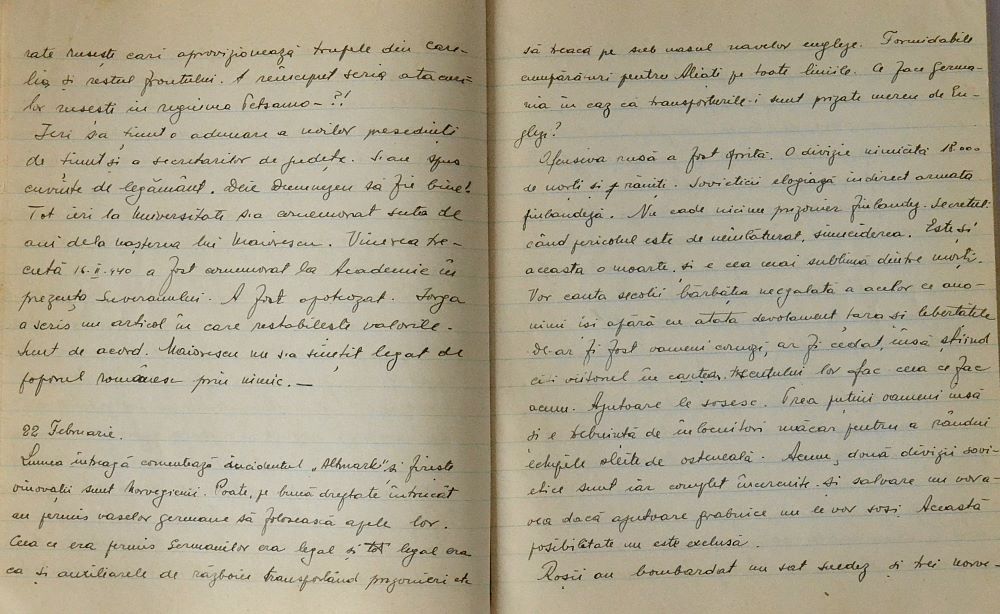 rate rusește cari aprovizionează trupele din care-
lia și restul frontului. A reînceput seria atacuri-
lor rusești în regiunea Petsamo - ?!
Ieri s'a ținut o adunare a noilor președinți
de ținut și a secretarilor de județe. S'au spus
cuvinte de legământ. Deie Dumnezeu să fie bine!
Tot ieri la Universitate s-a comemorat suta de
ani dela nașterea lui Maiorescu. Vinerea tre-
cută 16-II-940 a fost comemorat la Academie în
prezența Suveranului. A fost apoteozat. Iorga
a scris un articol în care restabilește valorile.
Sunt de acord. Maiorescu nu s-a simțit legat de
poporul românesc prin nimic. —
22 Februarie.
Lumea întreagă comentează incidentul „Altmark" și firește
vinovații sunt Norvegienii. Poate, pe bună dreptate întrucât
au permis vaselor germane să folosească apele lor.
Ceea ce era permis Germanilor era legal și tot legal era
ca și auxiliarele de războiu transportând prizonieri etc
să treacă pe sub nasul navelor engleze. Formidabile
cumpărături pentru Aliați pe toate liniile. Ce face Germa-
nia în caz că transporturile-i sunt prizate mereu de En-
gleji?
Ofensiva rusă a fost oprită. O divizie nimicită 18.000
de morți și răniți. Sovieticii elogiază indirect armata
finlandeză. Nu cade niciun prizonier finlandez. Secretul:
când pericolul este de neînlăturat, sinuciderea. Este și
aceasta o moarte, și e cea mai sublimă dintre morți.
Vor canta secolii bărbăția neegalată a acelor ce ano-
nimi își apără cu atâta devotament țara și libertățile
De-ar fi fost oameni corupți, ar fi cedat, însă știind
că-i viitorul în cartea trecutului lor fac ceea ce fac
acum. Ajutoare le sosesc. Prea puțini oameni însă
și e trebuință de înlocuitori măcar pentru a rândui
echipele sleite de osteneală. Acum, două divizii sovi-
etice sunt iar complet încercuite. Și salvare nu vor a-
vea dacă ajutoare grabnice nu le vor sosi. Această
posibilitate nu este exclusă.
Roșii au bombardat un sat suedez și trei norve-